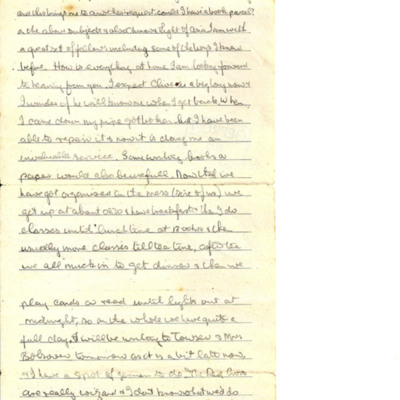 and this brings me to another request could I have a book parcel?
on the above subjects & also known light of asia I am with
a great set of fellows including some of the boys I knew
before. How is everything at home I am looking forward
to hearing from you. I expect Clive is a big boy now &
I wonder if he will know me when I get back. When
I came down my pipe got broken but I have been
able to repair it & now it is doing me an
invaluable service. Some writing books or
paper would also be usefull. Now that we
have got organised in the mess (six of us) we
get up at about 0830 & have breakfast & then I do
classes until lunch time at 1200hrs & then
usually more classes till tea time, after tea
we all muck in to get dinner & then we
play cards or read until lights out at
midnight, so on the whole we live quite a
full day. I will be writing to Towser & Mrs
Bolsover tomorrow as it is a bit late now
& I have a spot of german to do. The Red Cross
are really wizard & I dont know what we'd do